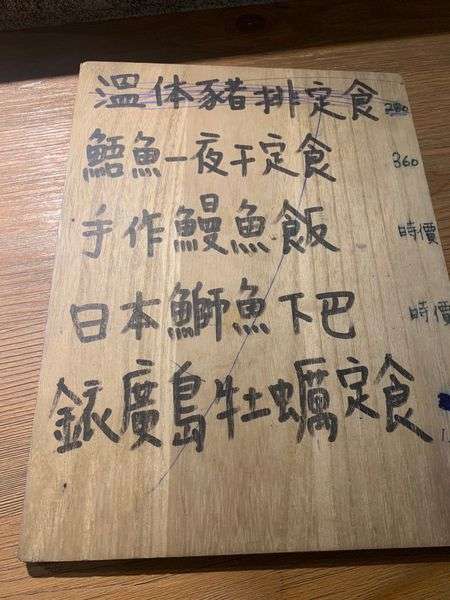 溫体豬排定食 280
鯃魚一夜干定食 360
手作鰻魚飯 時價
日本鰤魚下巴 時價
廣島牡蠣定食